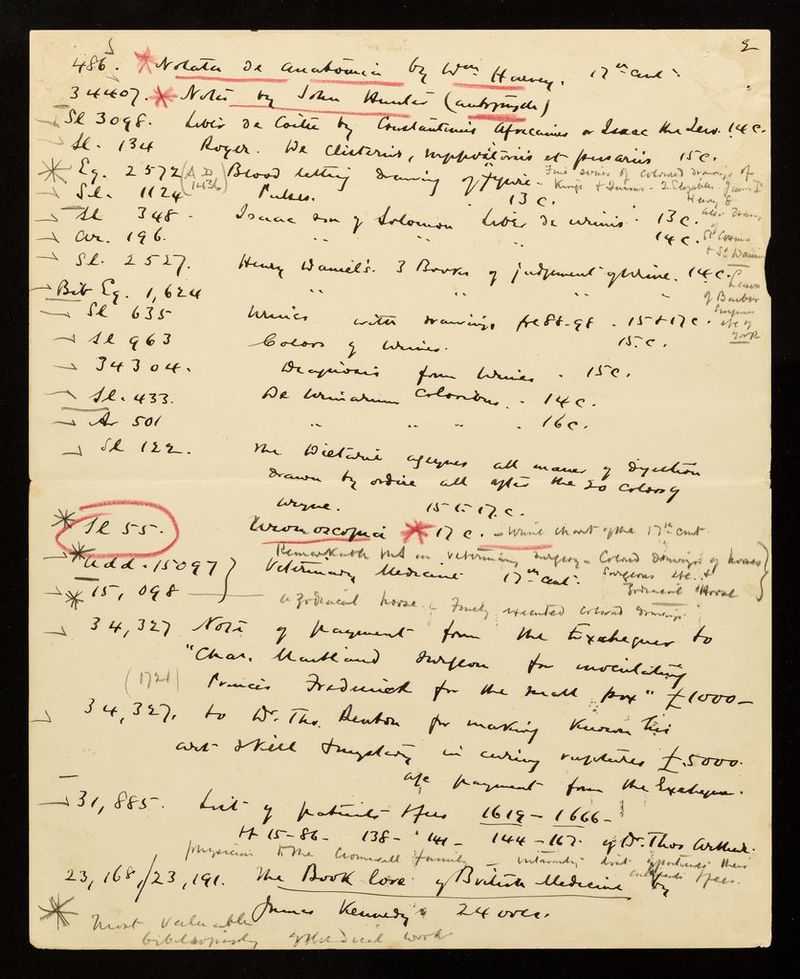 2
486. Notata de anatomia by Wm Harvey. 17th cent.
34407. Notes by John Hunter (autograph)
Sl 3098. Liber de Coitu by Constantinus Africanus or Isaac the Jew. 14 c.
Sl. 134 Roger. De clisteriis, suppositoriis et pessariis 15 c.
Eg. 2572 (A.D. 1436) Blood letting drawing of figure - Fine series of coloured drawings of
Kings & Queens - 2 Elizabeth. James I
Sl. 1124 Pulses. 13 c. Henry 8
Sl 348. Isaac son of Solomon Liber de urinis. 13 c. also Drawing
of
Ar. 196. " " " 14 c. St Cosmo
& St Damian
Sl. 2527. Henry Daniel's. 3 Books of judgement of Urine. 14 c. Laws
Bib Eg. 1,624 " " " of Barber
Surgeons
Sl 635 Urines with drawings fo 88-98. 15 & 17 c. etc of
York
Sl 963 Colors of Urines. 15. c.
34304. Diagnosis from Urines. 15 c.
Sl. 433. De Urinarum Coloribus. 14 c.
Ar 501 " " " 16 c.
Sl 122. The Dietarie ageynes all maner of
drawn by ordire all after the 20 colors of
uryne. 15 & 17. c.
Sl 55. Uronoscopia 17 c. - Urine chart of the 17th cent.
Remarkable MS on veterinary surgery - Colored Drawings of horses
Add. 15097 } Veterinary Medicine 17th cent. Surgeons etc. &
Zodiacal Horse
15,098 a Zodiacal horse. finely executed colored drawings
34,327 Note of payment from the Exchequer to
"Char. Maitland surgeon for inoculating
(1721) Princis Frederick for the small pox" £1000-
34,327. to Dr. Tho. Renton for making known his
art skill & mystery in curing ruptures £5000.
a/c payment from the Exchequer.
31,885. List of patients & fees 1619-1666-
ff 15-86- 138- 141- 144-167. of Dr. Thos Arthur.
physician to the Cromwell family - list of patients their
fees.
23,168/23,191. The Book lore of British Medicine by
James Kennedy. 24 vols.
Most valuable
bibliography of Medical work